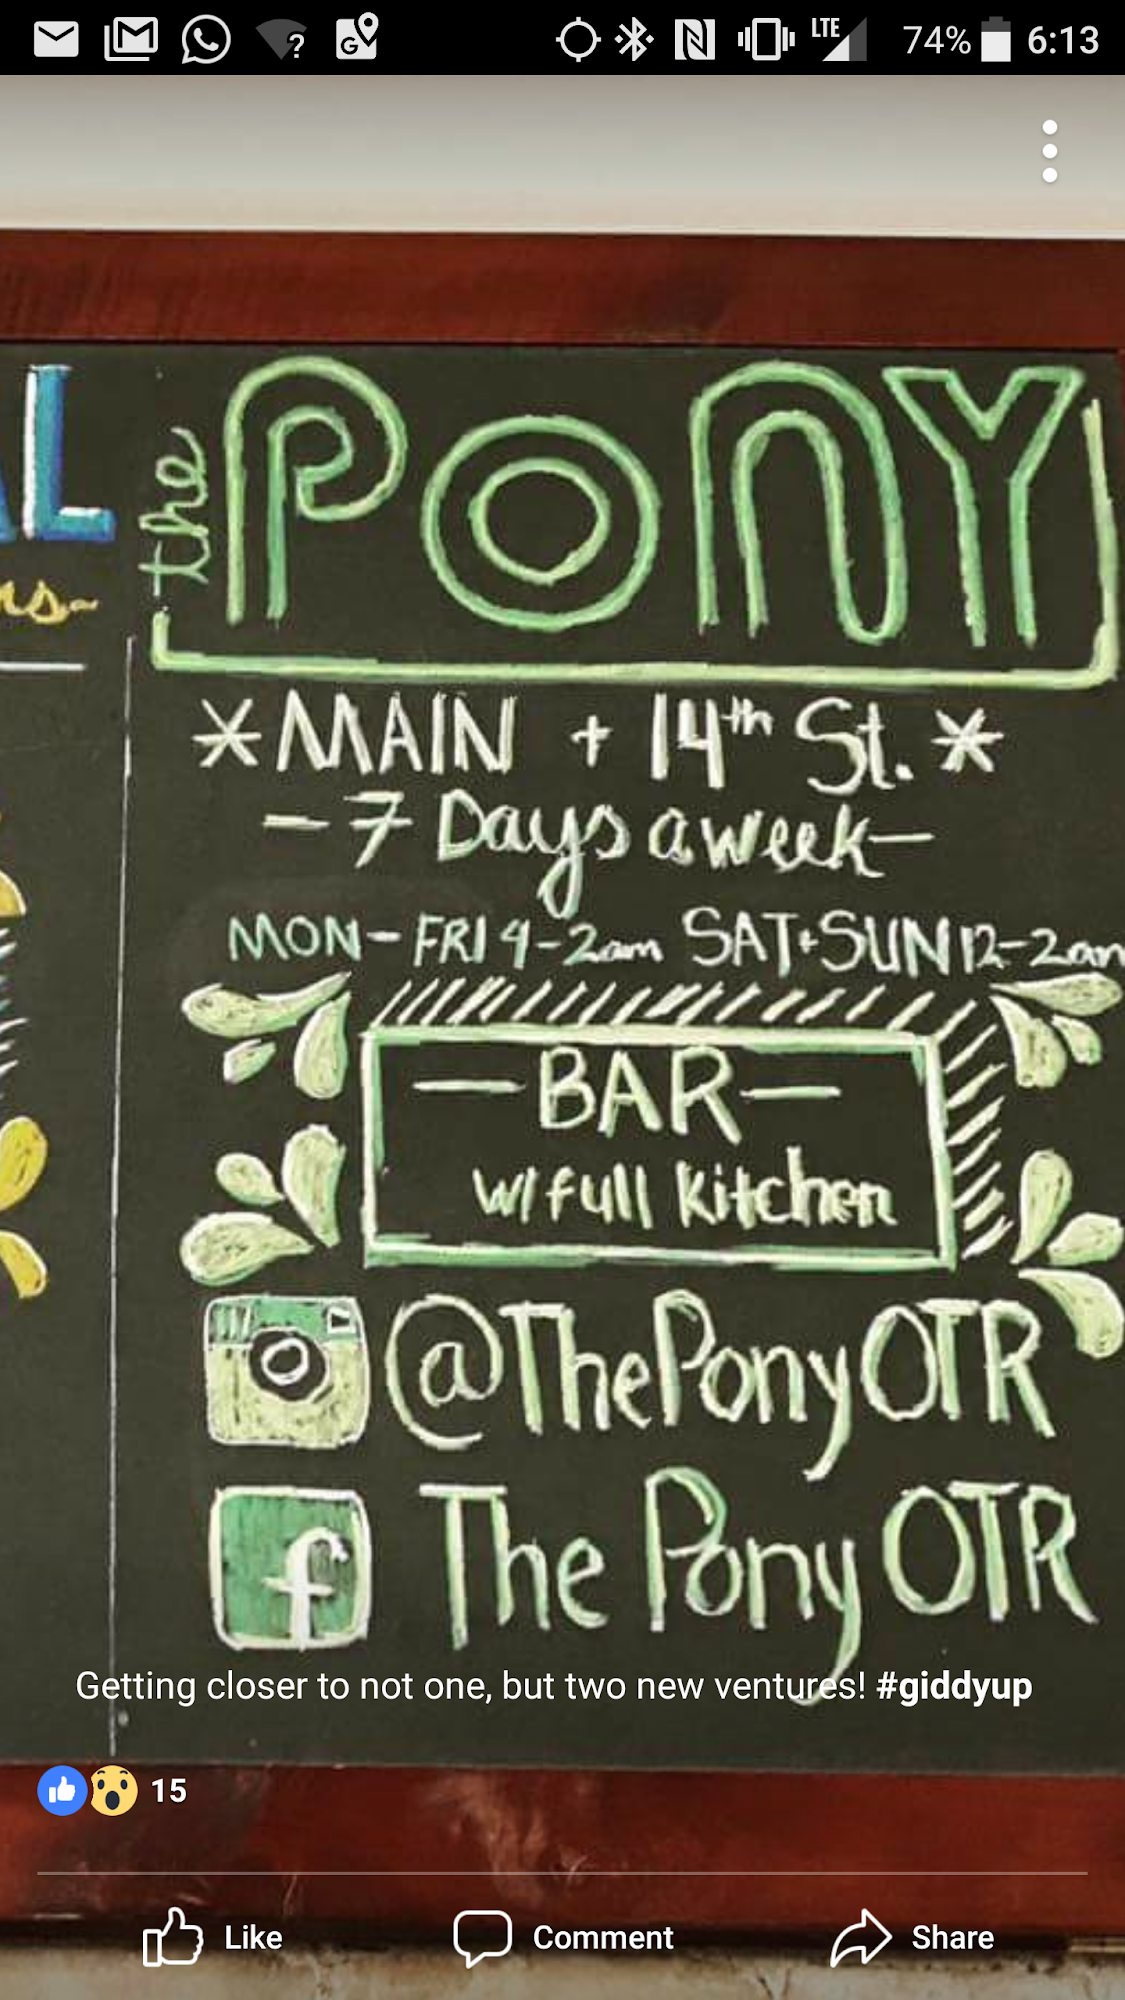 LTE 74% 6:13
AL
the PONY
ns-
*MAIN + 14th St.*
-7 Days a week-
MON-FRI 4-2am SAT+SUN 12-2am
-BAR-
w/ full kitchen
@ThePonyOTR
f The Pony OTR
Getting closer to not one, but two new ventures! #giddyup
15
Like Comment Share